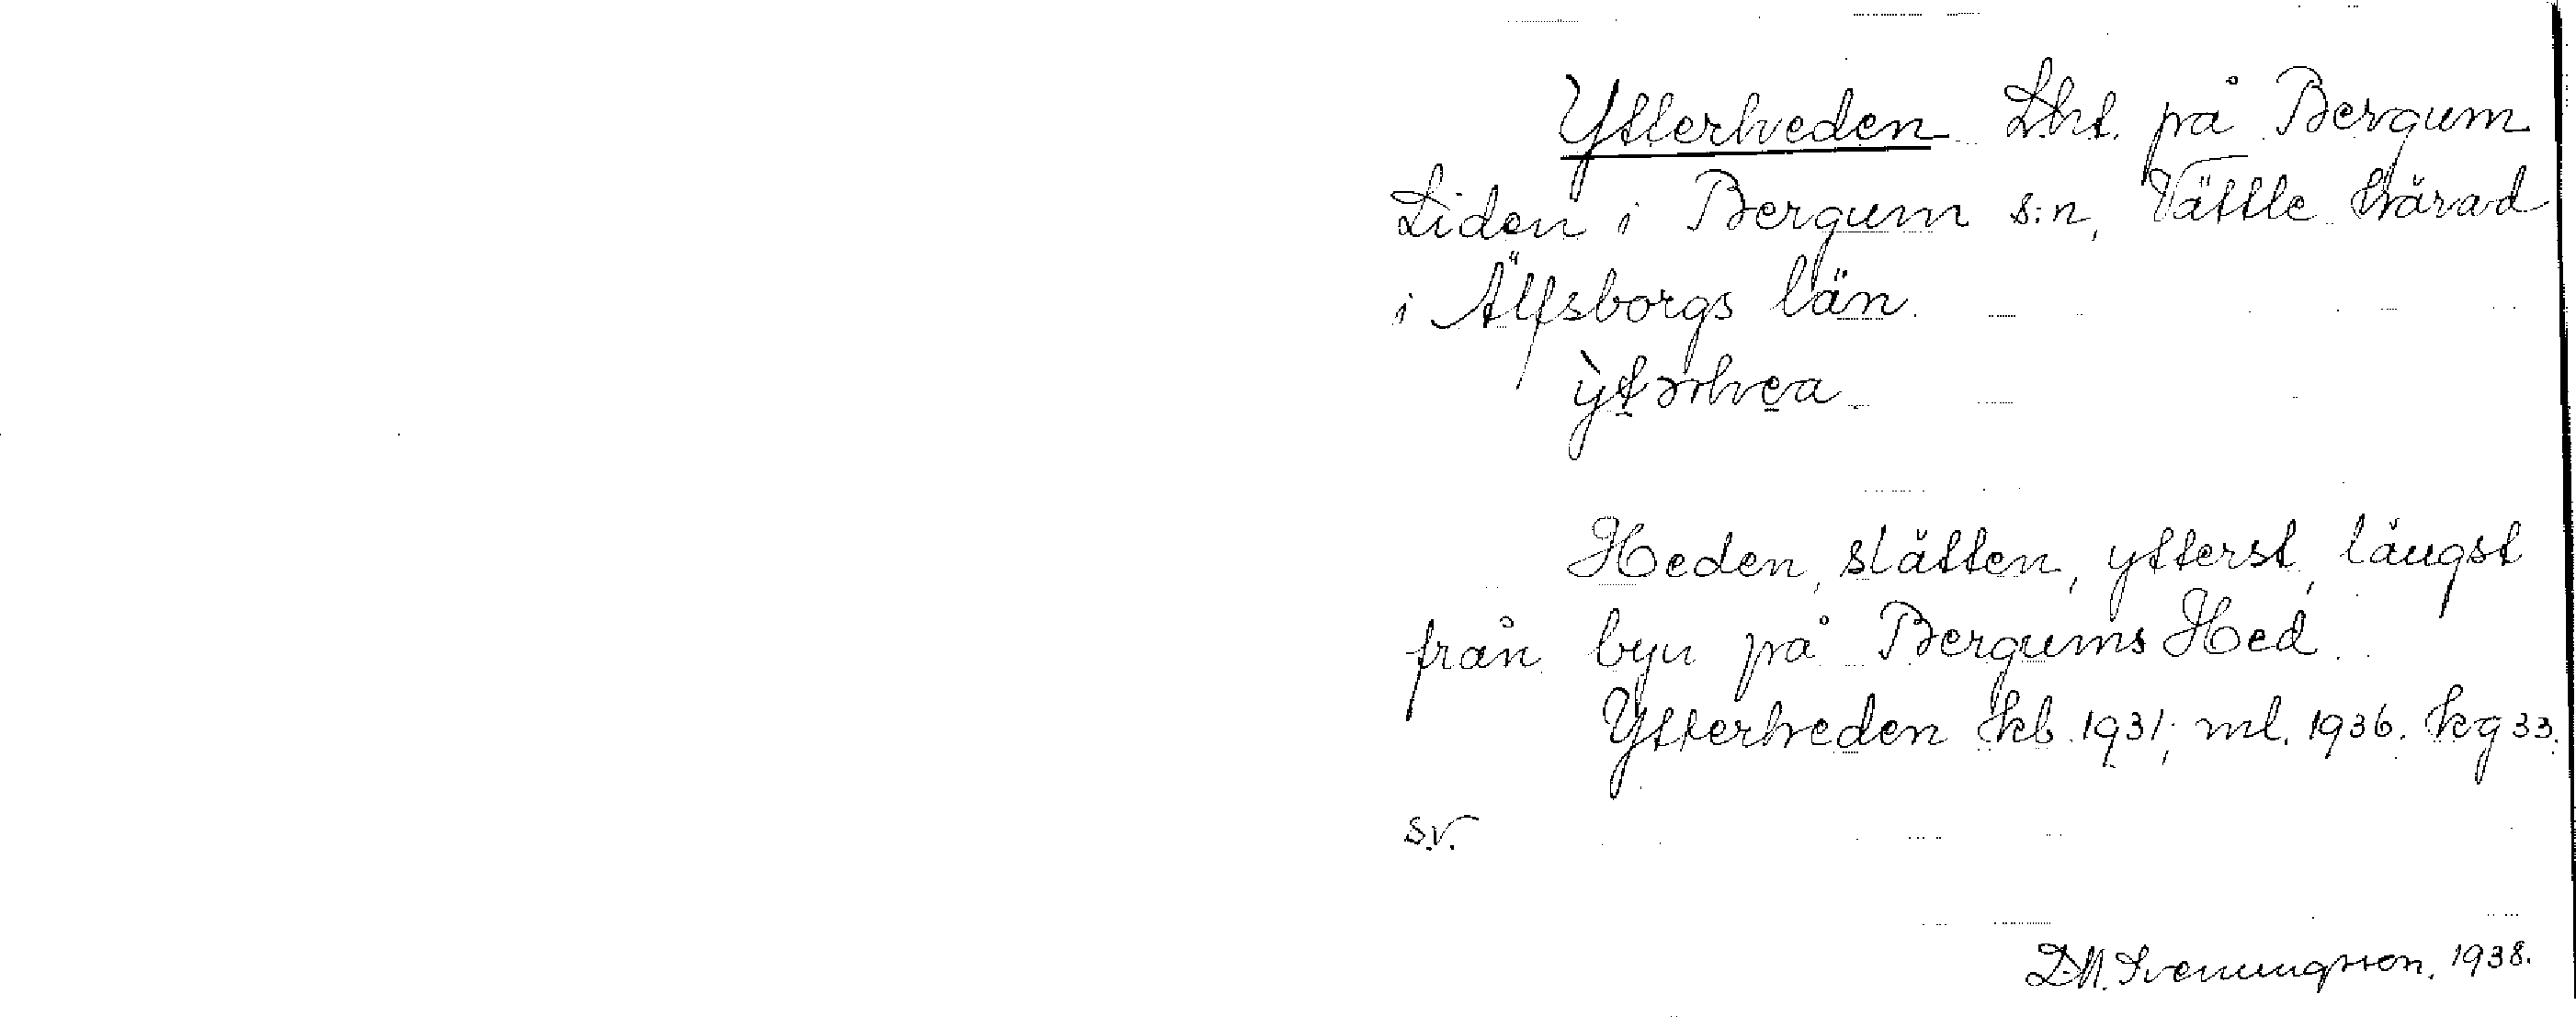 Ytterheden Lht. på Bergum
Liden i Bergum s:n, Vättle härad
i Älfsborgs län.
ỳtərhea
Heden, slätten, ytterst, längst
från byn på Bergums Hed.
Ytterheden kb 1931; ml. 1936. kg 33.
s.v.
D.M. Svenungsson. 1938.